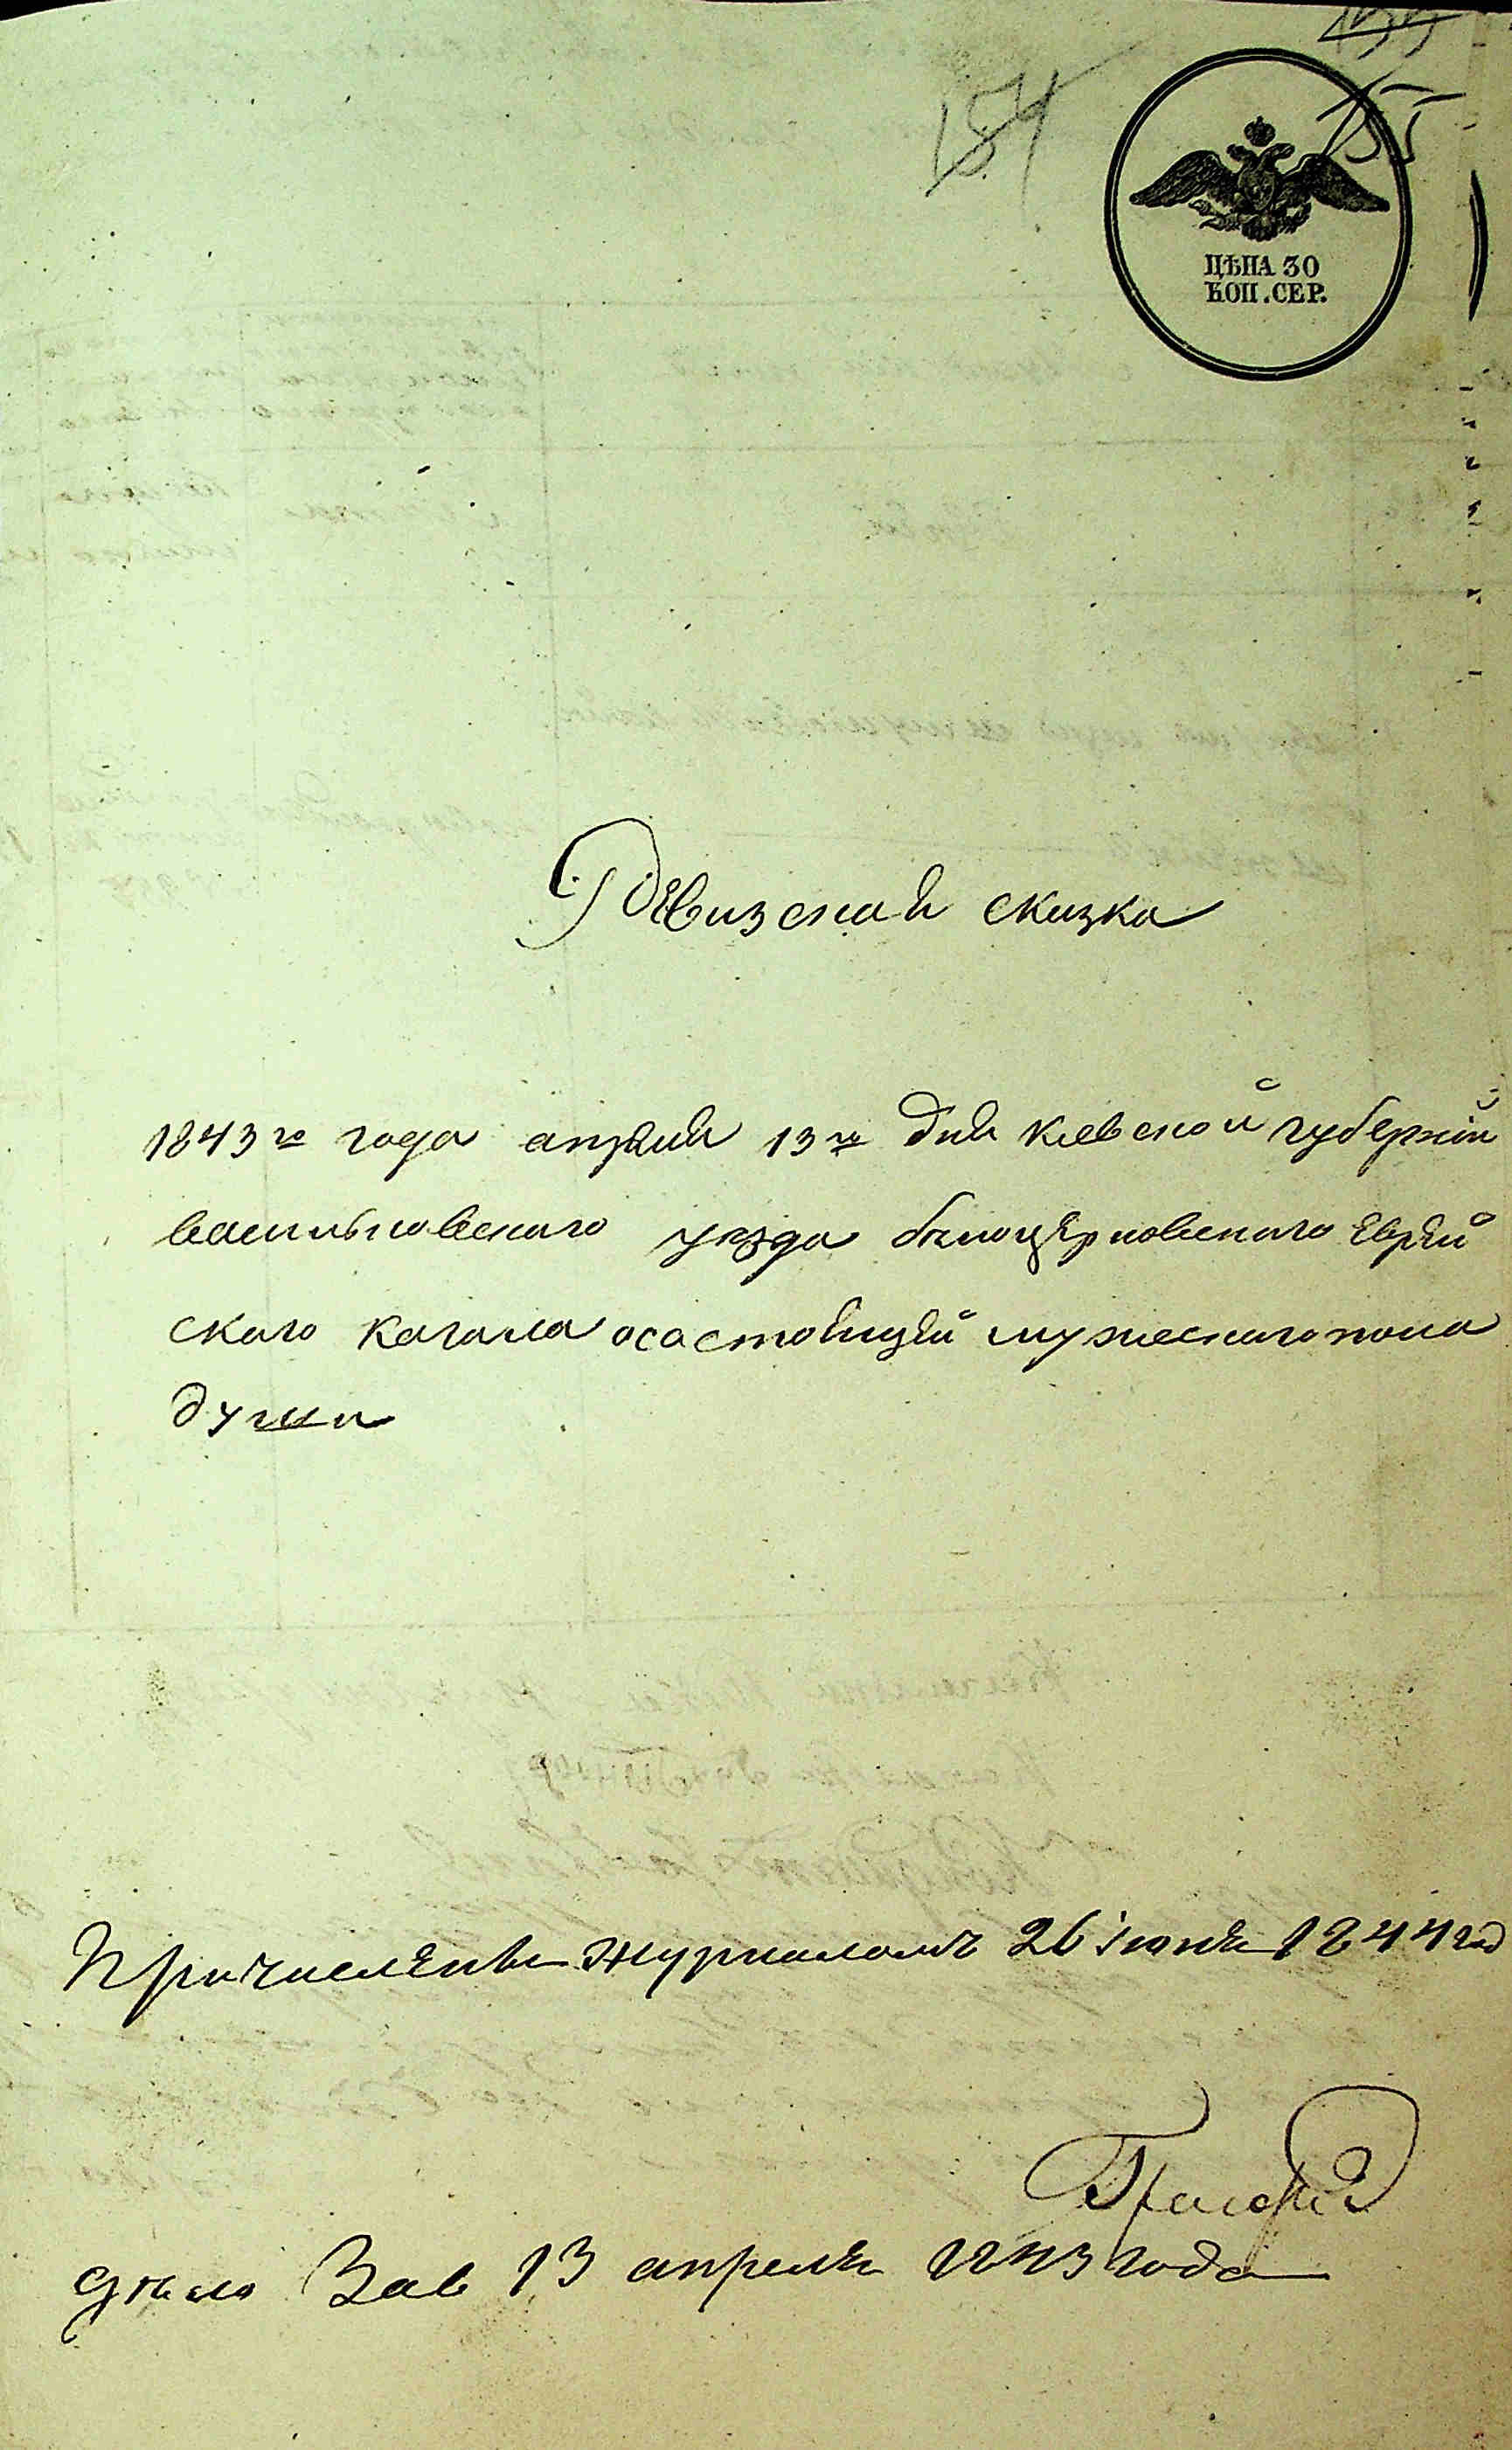 154
155
ЦѢНА 30
КОП. СЕР.
Ревизская сказка
1843го года апреля 13го дня киевской губернiи
васильковского уезда белоцерковского еврей
ского кагала осостоящей мужеского пола
души
Причислены журналомъ 26 iюня 1844 год
дѣло Зав 13 апреля 1843 года